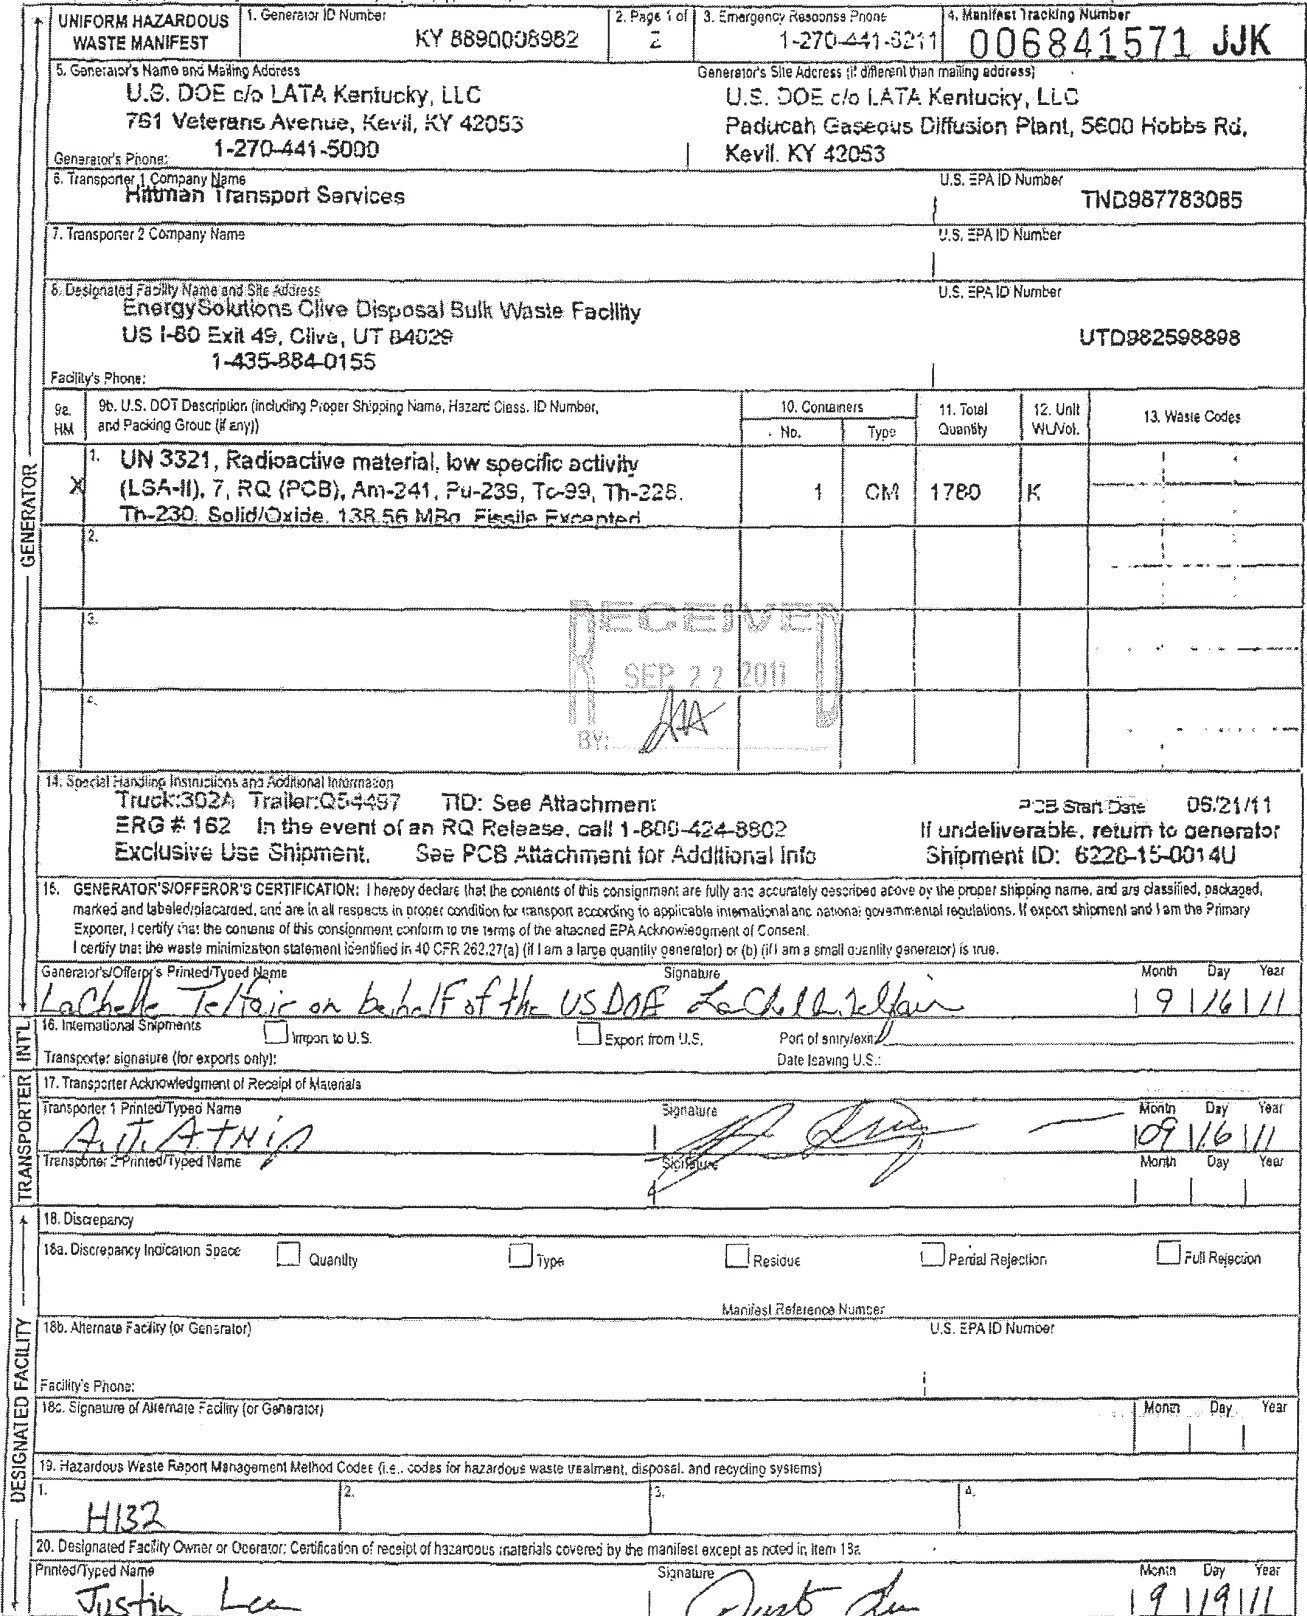 UNIFORM HAZARDOUS WASTE MANIFEST
1. Generator ID Number
KY 8890008982
2. Page 1 of
2
3. Emergency Response Phone
1-270-441-6211
4. Manifest Tracking Number
006841571 JJK
5. Generator's Name and Mailing Address
Generator's Site Address (if different than mailing address)
U.S. DOE c/o LATA Kentucky, LLC
U.S. DOE c/o LATA Kentucky, LLC
761 Veterans Avenue, Kevil, KY 42053
Paducah Gaseous Diffusion Plant, 5600 Hobbs Rd,
Generator's Phone: 1-270-441-5000
Kevil. KY 42053
6. Transporter 1 Company Name
U.S. EPA ID Number
Hittman Transport Services
TND987783085
7. Transporter 2 Company Name
U.S. EPA ID Number
8. Designated Facility Name and Site Address
U.S. EPA ID Number
EnergySolutions Clive Disposal Bulk Waste Facility
US I-80 Exit 49, Clive, UT 84029
UTD982598898
1-435-884-0155
Facility's Phone:
9a. HM
9b. U.S. DOT Description (including Proper Shipping Name, Hazard Class, ID Number, and Packing Group (if any))
10. Containers
No.
Type
11. Total Quantity
12. Unit Wt./Vol.
13. Waste Codes
X
1. UN 3321, Radioactive material, low specific activity
(LSA-II), 7, RQ (PCB), Am-241, Pu-239, Tc-99, Th-228,
Th-230, Solid/Oxide, 138.56 MBq, Fissile Excepted
1 CM 1780 K
2.
3.
4.
RECEIVED
SEP 22 2011
BY:
14. Special Handling Instructions and Additional Information
Truck:302A Trailer:Q54497 TID: See Attachment PCB Start Date 06/21/11
ERG # 162 In the event of an RQ Release, call 1-800-424-8802 If undeliverable, return to generator
Exclusive Use Shipment. See PCB Attachment for Additional Info Shipment ID: 6228-15-0014U
15. GENERATOR'S/OFFEROR'S CERTIFICATION: I hereby declare that the contents of this consignment are fully and accurately described above by the proper shipping name, and are classified, packaged,
marked and labeled/placarded, and are in all respects in proper condition for transport according to applicable international and national governmental regulations. If export shipment and I am the Primary
Exporter, I certify that the contents of this consignment conform to the terms of the attached EPA Acknowledgment of Consent.
I certify that the waste minimization statement identified in 40 CFR 262.27(a) (if I am a large quantity generator) or (b) (if I am a small quantity generator) is true.
Generator's/Offeror's Printed/Typed Name
Signature
Month Day Year
LaChelle Telfair on behalf of the USDOE LaChelle Telfair
9 16 11
16. International Shipments
Import to U.S.
Export from U.S.
Port of entry/exit:
Transporter signature (for exports only):
Date leaving U.S.:
17. Transporter Acknowledgment of Receipt of Materials
Transporter 1 Printed/Typed Name
Signature
Month Day Year
A.J. Atnip
09 16 11
Transporter 2 Printed/Typed Name
Signature
Month Day Year
18. Discrepancy
18a. Discrepancy Indication Space
Quantity
Type
Residue
Partial Rejection
Full Rejection
Manifest Reference Number
18b. Alternate Facility (or Generator)
U.S. EPA ID Number
Facility's Phone:
18c. Signature of Alternate Facility (or Generator)
Month Day Year
19. Hazardous Waste Report Management Method Codes (i.e., codes for hazardous waste treatment, disposal, and recycling systems)
1.
2.
3.
4.
H132
20. Designated Facility Owner or Operator: Certification of receipt of hazardous materials covered by the manifest except as noted in Item 18a
Printed/Typed Name
Signature
Month Day Year
Justin Lee
9 19 11
GENERATOR
INT'L
TRANSPORTER
DESIGNATED FACILITY